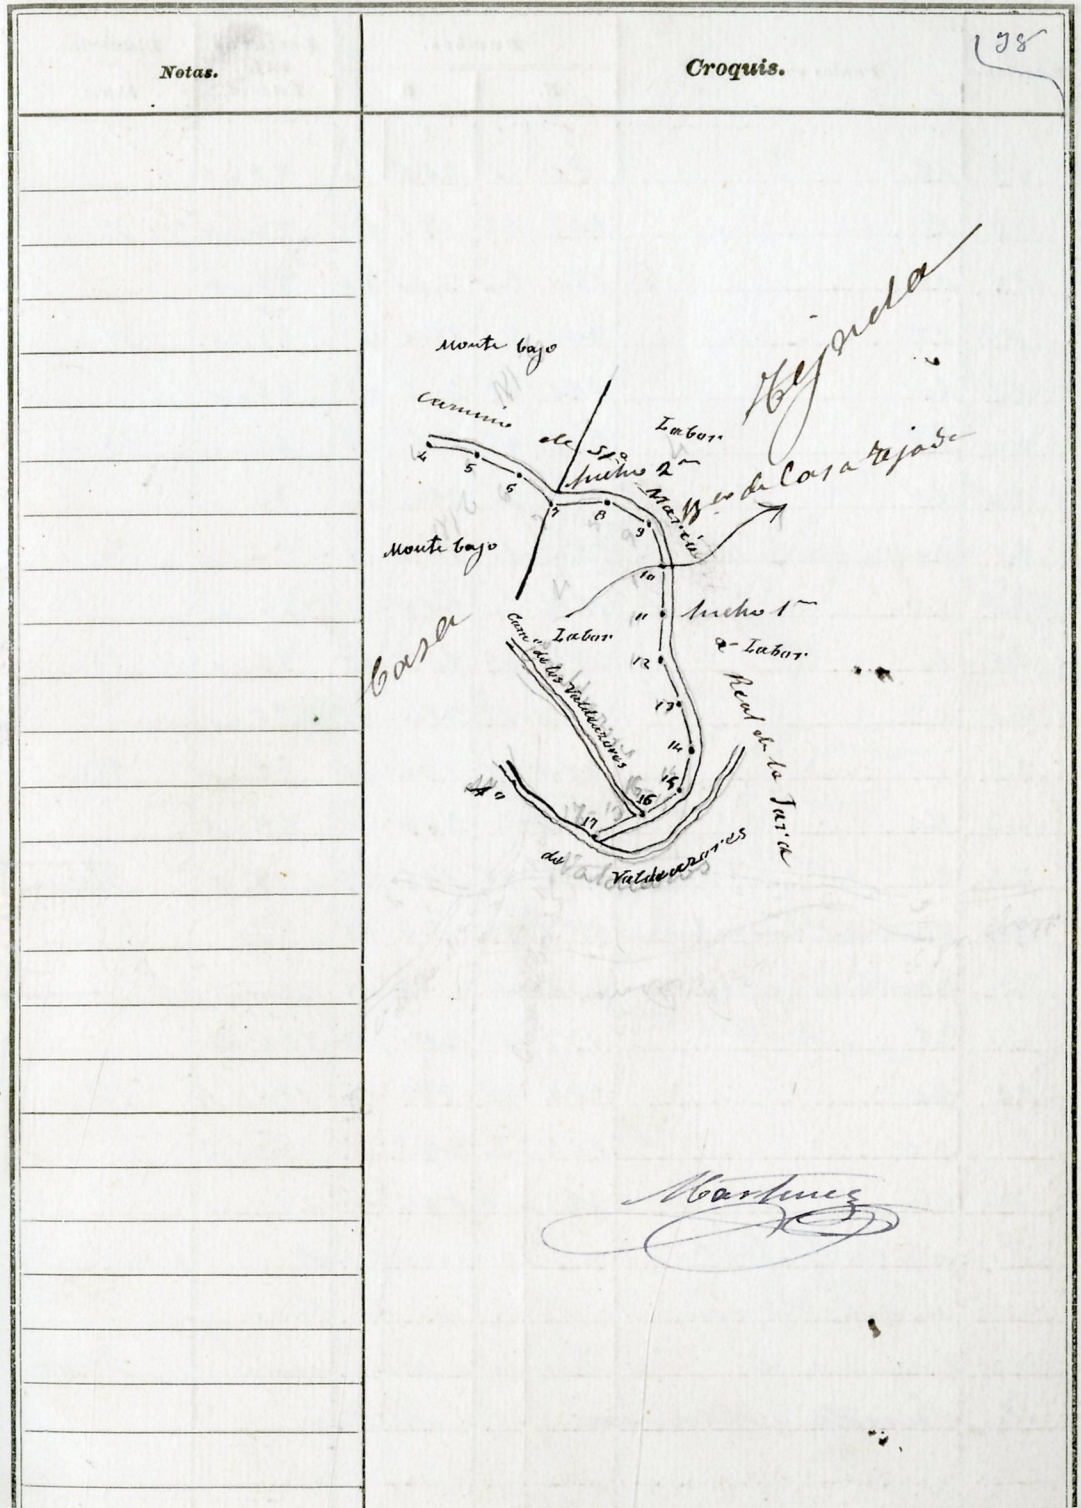 Notas.
Croquis.
98
Monte bajo
Camino de Sta María
Labor
Tejada
Ancho 2m
Aro de Casa Tejada
4
5
6
7
8
9
10
11
12
13
14
15
16
17
Monte bajo
Casa
Labor
Ancho 1m
a- Labor
Cam° de los Valdeazores
Real de la Jara
Aro
de
Valdeazores
Martinez